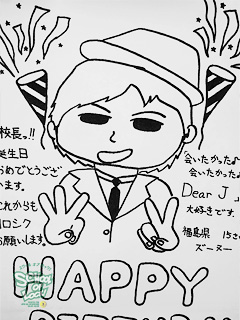 校長っ!!
誕生日
おめでとうござ
います。
これからも
ヨロシク
お願いします。
「会いたかった♪
会いたかった♪
Dear J」
大好きです
福島県 15さ
ズーヌー
HAPPY
BIRTHDAY